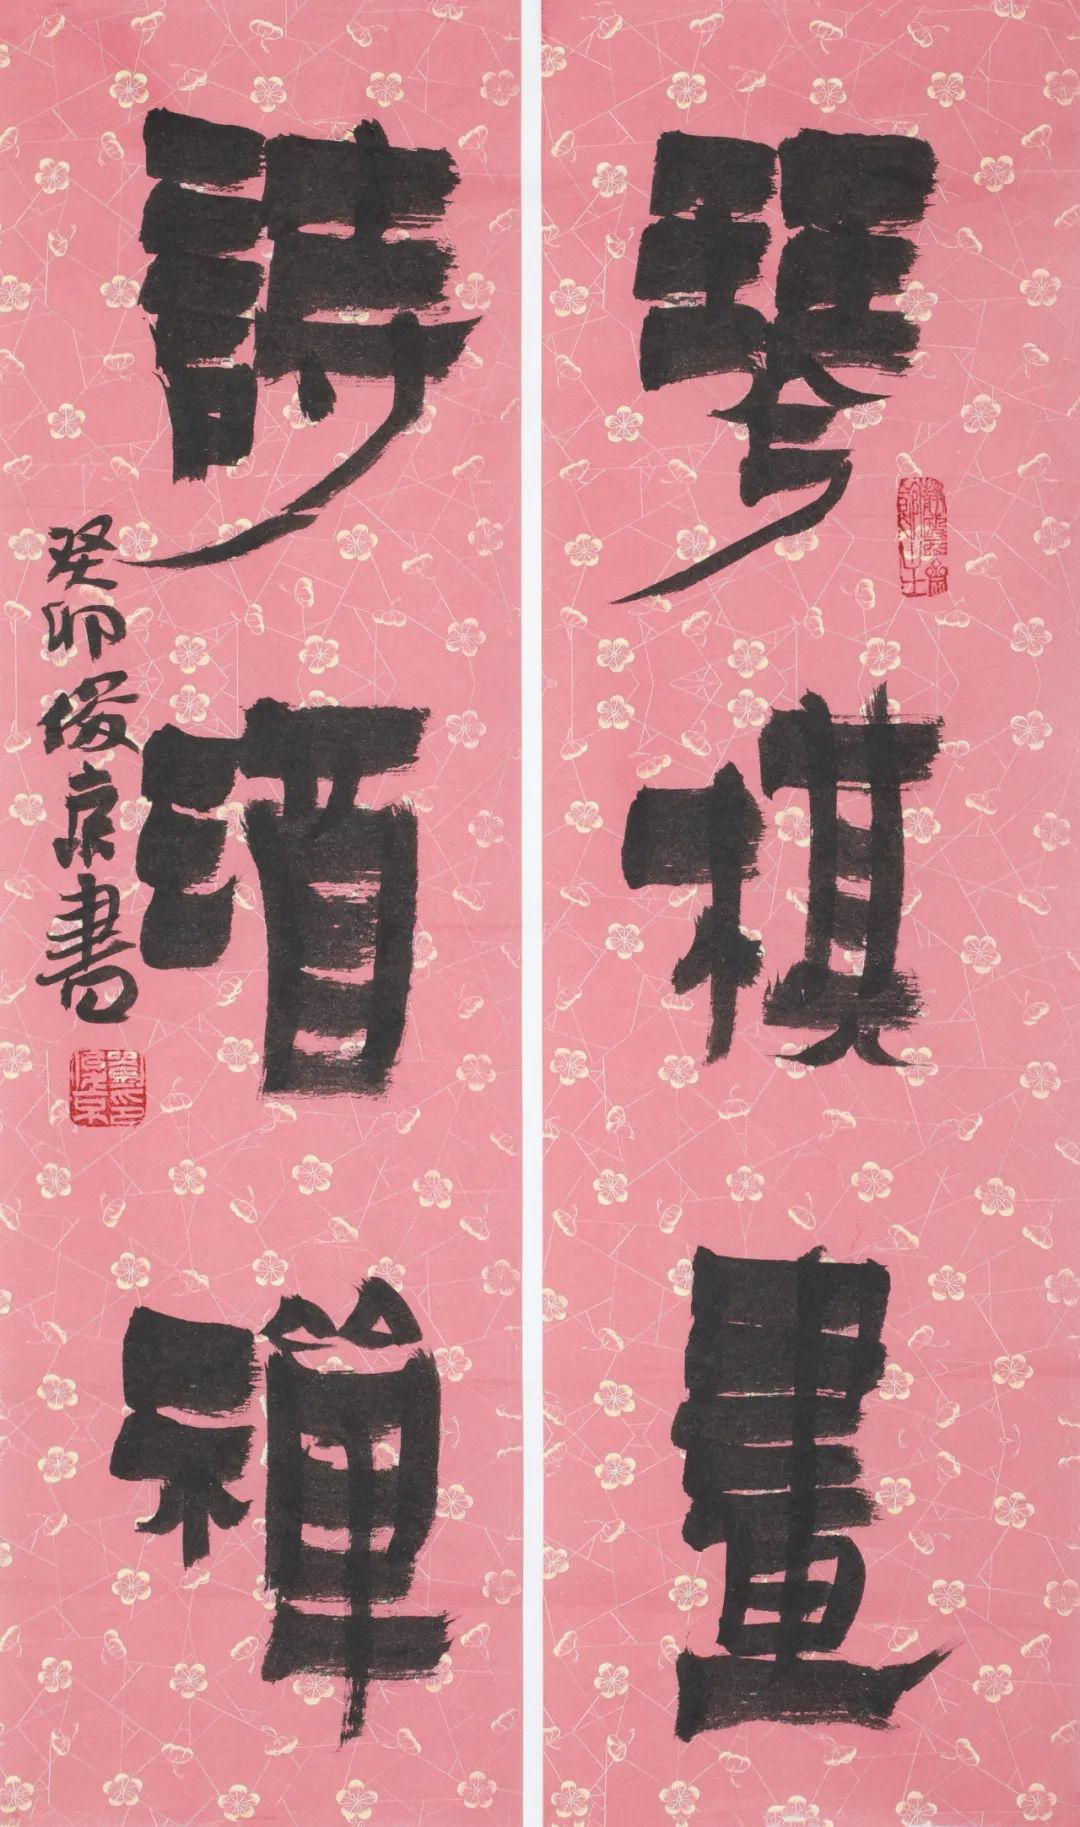 琴棋畫
詩酒禪
癸卯俊康書